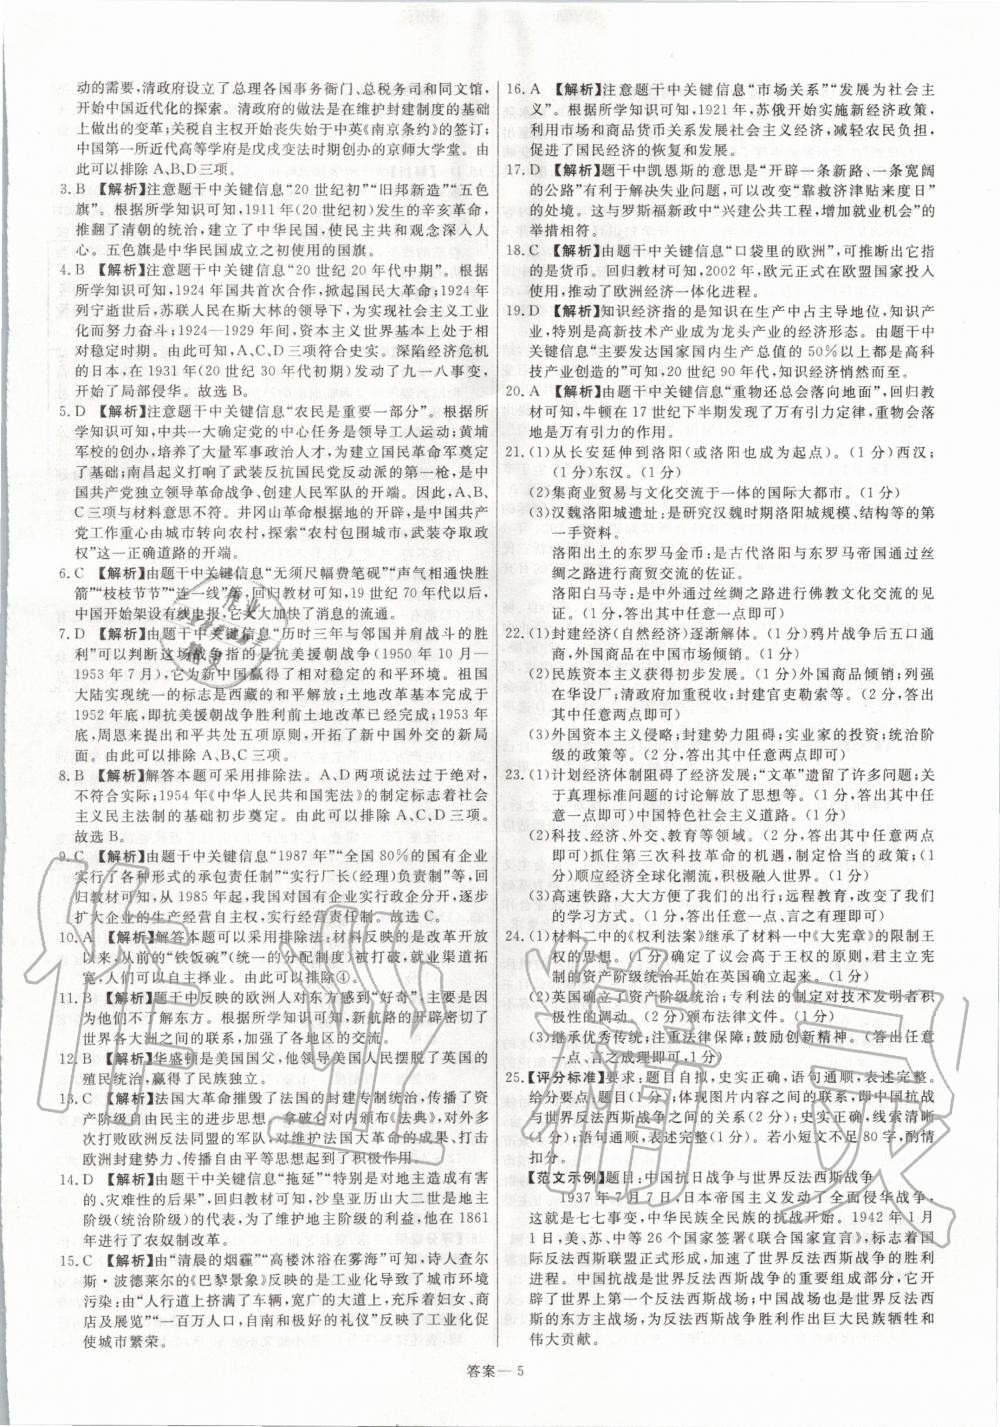 动的需要,清政府设立了总理各国事务衙门、总税务司和同文馆,
开始中国近代化的探索。清政府的做法是在维护封建制度的基础
上做出的变革;关税自主权开始丧失始于中英《南京条约》的签订;
中国第一所近代高等学府是戊戌变法时期创办的京师大学堂。由
此可以排除 A、B、D 三项。
3. B 【解析】注意题干中关键信息“20 世纪初”“旧邦新造”“五色
旗”。根据所学知识可知,1911 年(20 世纪初)发生的辛亥革命,
推翻了清朝的统治,建立了中华民国,使民主共和观念深入人
心。五色旗是中华民国成立之初使用的国旗。
4. B 【解析】注意题干中关键信息“20 世纪 20 年代中期”。根据
所学知识可知,1924 年国共首次合作,掀起国民大革命;1924 年
列宁逝世后,苏联人民在斯大林的领导下,为实现社会主义工业
化而努力奋斗;1924—1929 年间,资本主义世界基本上处于相
对稳定时期。由此可知,A、C、D 三项正确。深陷经济危机
的日本,在 1931 年(20 世纪 30 年代初期)发动了九一八事变,
开始了局部侵华。故选 B。
5. D 【解析】注意题干中关键信息“农民是重要一部分”。根据所
学知识可知,中共一大确定党的中心任务是领导工人运动;黄埔
军校的创办,培养了大量军事政治人才,为建立国民革命军奠定
了基础;南昌起义打响了武装反抗国民党反动派的第一枪,是中
国共产党独立领导革命战争、创建人民军队的开端。因此,A、B、
C 三项与材料意思不符。井冈山革命根据地的开辟,是中国共产
党工作重心由城市转向农村,探索“农村包围城市,武装夺取政
权”这一正确道路的开端。
6. C 【解析】由题干中关键信息“无须尺幅费笔砚”“声气相通快胜
箭”“枝枝节节”“连一线”等,回归教材可知,19 世纪 70 年代以后,
中国开始架设有线电报,它大大加快了消息的流通。
7. D 【解析】由题干中关键信息“历时三年与邻国并肩战斗的胜
利”可以判断这场战争指的是抗美援朝战争(1950 年 10 月—
1953 年 7 月),它为新中国赢得了相对稳定的和平环境。祖国
大陆实现统一的标志是西藏的和平解放;土地改革基本完成于
1952 年底,即抗美援朝战争胜利前土地改革已经完成;1953 年
底,周恩来提出和平共处五项原则,开拓了新中国外交的新局
面。由此可以排除 A、B、C 三项。
8. B 【解析】解答本题可采用排除法。A、D 两项说法过于绝对,
不符合实际;1954 年《中华人民共和国宪法》的制定标志着社会
主义民主法制的基础初步奠定。由此可以排除 A、C、D 三项。
故选 B。
9. C 【解析】由题干中关键信息“1987 年”“全国 80%的国有企业
实行了各种形式的承包责任制”“实行厂长(经理)负责制”等,回
归教材可知,从 1985 年起,我国对国有企业实行政企分开,逐步
扩大企业的生产经营自主权,实行经营责任制。故选 C。
10. A 【解析】解答本题可以采用排除法;材料反映的是改革开放
以来,从前的“铁饭碗”(统一的分配制度)被打破,就业渠道拓
宽,人们可以自主择业。由此可以排除④。
11. B 【解析】题干中反映的欧洲人对东方感到“好奇”,主要是因
为他们不了解东方。根据所学知识可知,新航路的开辟密切了
世界各大洲之间的联系,加强了各地区的交流。
12. B 【解析】华盛顿是美国国父,他领导美国人民摆脱了英国的
殖民统治,赢得了民族独立。
13. C 【解析】法国大革命摧毁了法国的封建专制统治,传播了资
产阶级自由民主的进步思想;拿破仑对内颁布《法典》,对外多
次打败欧洲反法同盟的军队,对维护法国大革命的成果、打击
欧洲封建势力、传播自由平等思想起到了积极作用。
14. D 【解析】由题干中关键信息“拖延”“特别是对地主造成有害
的、灾难性的后果”,回归教材可知,沙皇亚历山大二世是地主
阶级(统治阶级)的代表,为了维护地主阶级的利益,他在 1861
年进行了农奴制改革。
15. C 【解析】由“清晨的烟霾”“高楼沐浴在雾海”可知,诗人查尔
斯·波德莱尔的《巴黎景象》反映的是工业化导致了城市环境
污染;由“人行道上挤满了车辆,宽广的大道上,充斥着妇女、商
店及展览”“一百万人口,自南和极好的礼仪”反映了工业化促
使城市繁荣。
16. A 【解析】注意题干关键信息“市场关系”“发展为社会主
义”。根据所学知识可知,1921 年,苏俄开始实施新经济政策,
利用市场和商品货币关系发展社会主义经济,减轻农民负担,
促进了国民经济的恢复和发展。
17. D 【解析】题干中凯恩斯的意思是“开辟一条新路、一条宽阔
的公路”有利于解决失业问题,可以改变“靠救济津贴来度日”
的处境。这与罗斯福新政中“兴建公共工程,增加就业机会”的
举措相符合。
18. C 【解析】由题干中关键信息“口袋里的欧洲”,可推断出它指
的是货币。回归教材可知,2002 年,欧元正式在欧盟国家投入
使用,推动了欧洲经济一体化进程。
19. D 【解析】知识经济指的是知识在生产中占主导地位,知识产
业,特别是高新技术产业成为龙头产业的经济形态。由题干中
关键信息“主要发达国家国内生产总值的 50%以上都是高科
技产业创造的”可知,20 世纪 90 年代,知识经济悄然而至。
20. A 【解析】由题干中关键信息“重物还总会落向地面”,回归教
材可知,牛顿在 17 世纪下半期发现了万有引力定律,重物会落
地是万有引力的作用。
21. (1)从长安延伸到洛阳(或洛阳也成为起点)。(1 分)西汉;
(1 分)东汉。(1 分)
(2)集商业贸易与文化交流于一体的国际大都市。(1 分)
(3)汉魏洛阳城遗址:是研究汉魏时期洛阳城规模、结构等的第
一手资料。
洛阳出土的东罗马金币:是古代洛阳与东罗马帝国通过丝
绸之路进行商贸交流的佐证。
洛阳白马寺:是中外通过丝绸之路进行佛教文化交流的见
证。(1 分,答出其中任意一点即可)
22. (1)封建经济(自然经济)逐渐解体。(1 分)鸦片战争后五口通
商,外国商品在中国市场倾销。(1 分)
(2)民族资本主义获得初步发展。(1 分)外国商品倾销;列强
在华设厂;清政府加重税收;封建官吏勒索等。(2 分,答出
其中任意两点即可)
(3)外国资本主义侵略;封建势力阻碍;实业家的投资;统治阶
级的政策等。(2分,答出其中任意两点即可)
23. (1)计划经济体制阻碍了经济发展;“文革”遗留了许多问题;关
于真理标准问题的讨论解放了思想等。(1 分,答出其中任
意一点即可)中国特色社会主义道路。(1 分)
(2)科技、经济、外交、教育等领域。(2 分,答出其中任意两点
即可)抓住第三次科技革命的机遇,制定恰当的政策。
(1 分)顺应经济全球化潮流,积极融入世界。(1 分)
(3)高速铁路,大大方便了我们的出行;远程教育,改变了我们
的学习方式。(1 分,答出其中任意一点、言之有理即可)
24. (1)材料二中的《权利法案》继承了材料一中《大宪章》的限制王
权的思想。(1 分)确定了议会高于王权的原则,君主立宪
制的资产阶级统治开始在英国确立起来。(1 分)
(2)英国确立了资产阶级统治;专利法的制定对技术发明者积
极性的调动。(2 分)颁布法律文件。(1 分)
(3)继承优秀传统;注重法律保障;鼓励创新精神。(答出任意
一点、言之成理即可,1 分)
25. 【评分标准】要求:题目自拟,史实正确,语句通顺,表述完整。
给分要点:题目(1 分);体现中国与世界的联系,即中国抗战
与世界反法西斯战争之间的关系(2 分);史实正确,线索清晰
(1 分);语句通顺、表述完整(2 分)。若小短文不足 80 字,酌情
扣分。
【范文示例】题目:中国抗日战争与世界反法西斯战争
1937 年 7 月 7 日,日本帝国主义发动了全面侵华战争,
这就是七七事变,中华民族全民族的抗战开始。1942 年 1 月
1 日,美、苏、中等 26 个国家签署《联合国家宣言》,标志着国
际反法西斯联盟正式形成,加速了世界反法西斯战争的胜利
进程。中国抗战是世界反法西斯战争的重要组成部分,它开
辟了世界上第一个反法西斯战场;中国战场也是世界反法西
斯的东方主战场,为反法西斯战争胜利作出巨大民族牺牲和
伟大贡献。
答案— 5
作业精灵